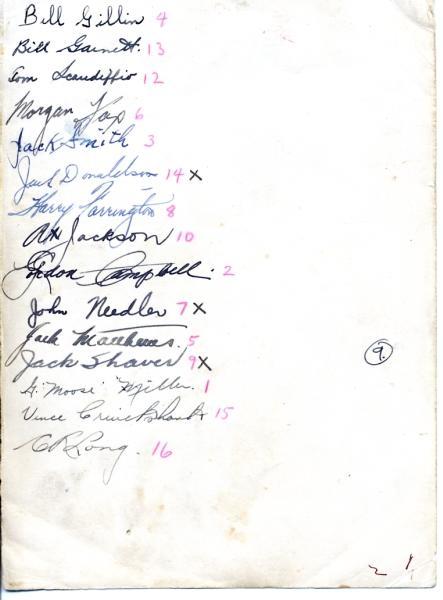 Bill Gillin 4
Bill Garnett. 13
Tom Scandiffio 12
Morgan Fox 6
Jack Smith 3
Jack Donaldson 14 x
Harry Farrington 8
Art Jackson 10
Gordon Campbell. 2
John Needler 7 x
Jack Matthews. 5
Jack Shaver 9 x
G. "Moose" Miller. 1
Vince Cruickshank 15
C R Long. 16
9.
2 1